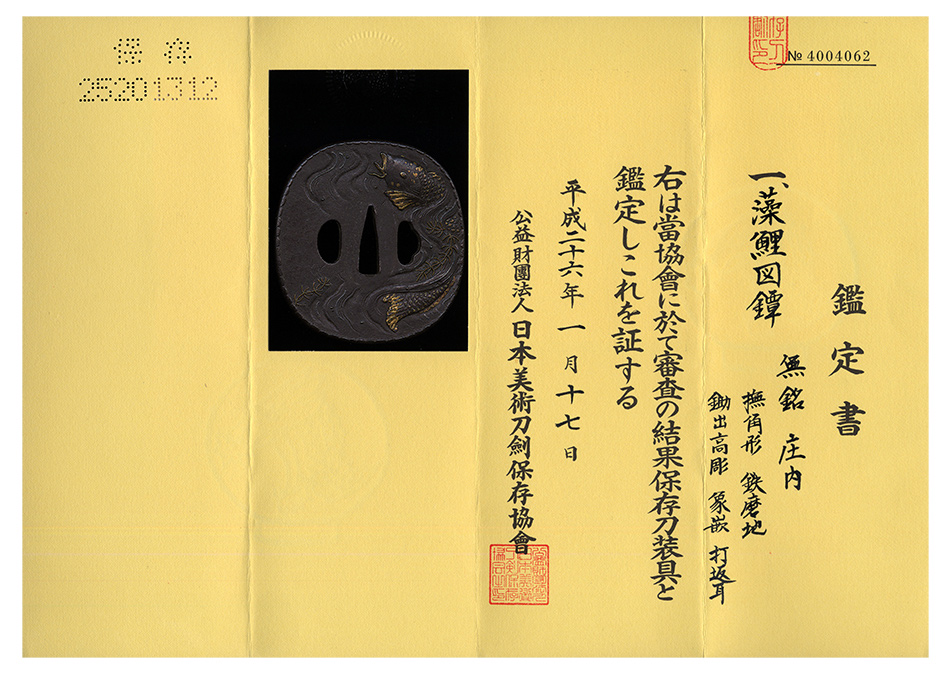 № 4004062
鑑定書
一、藻鯉図鐔
無銘 庄内
撫角形 鉄磨地
鋤出高彫 象嵌 打返耳
右は當協會に於て審査の結果保存刀装具と
鑑定しこれを証する
平成二十六年一月十七日
公益財團法人 日本美術刀劍保存協會
保存
25201312